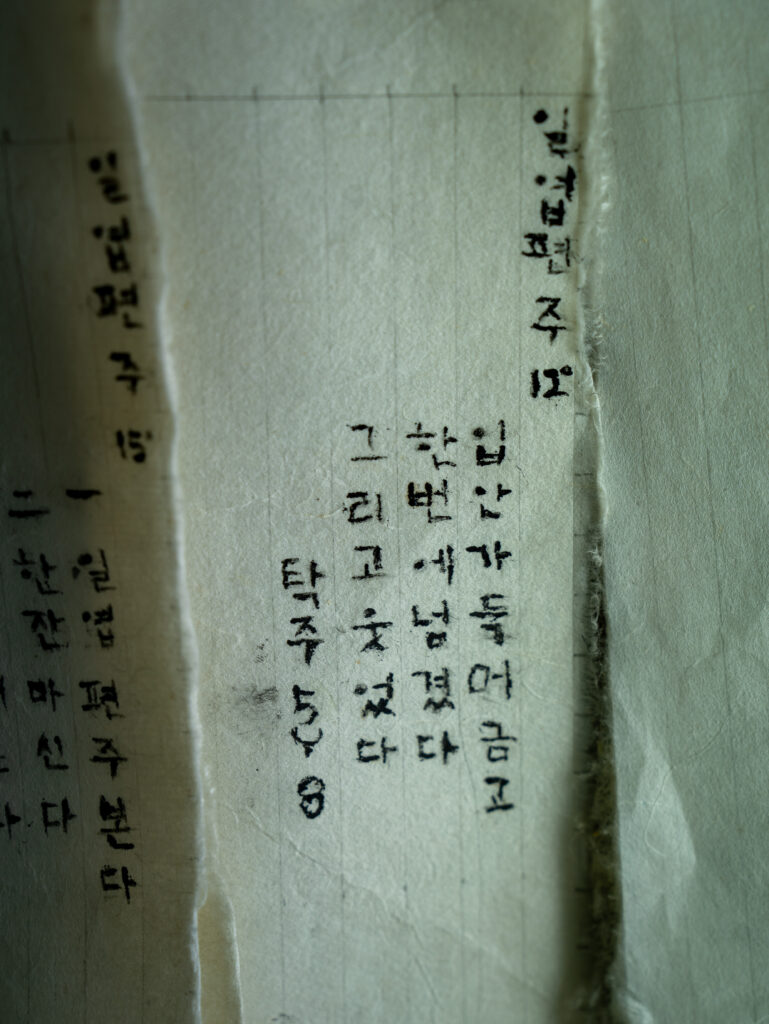 일엽편주 12°
입안가득머금고
한번에넘겼다
그리고웃었다
탁주 5~8
일엽편주 15°
一 일엽편주본다
二 한잔마신다